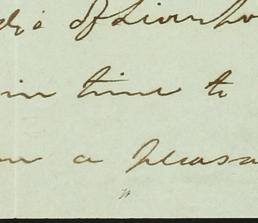 of Liverpo
in time to
a pleasa